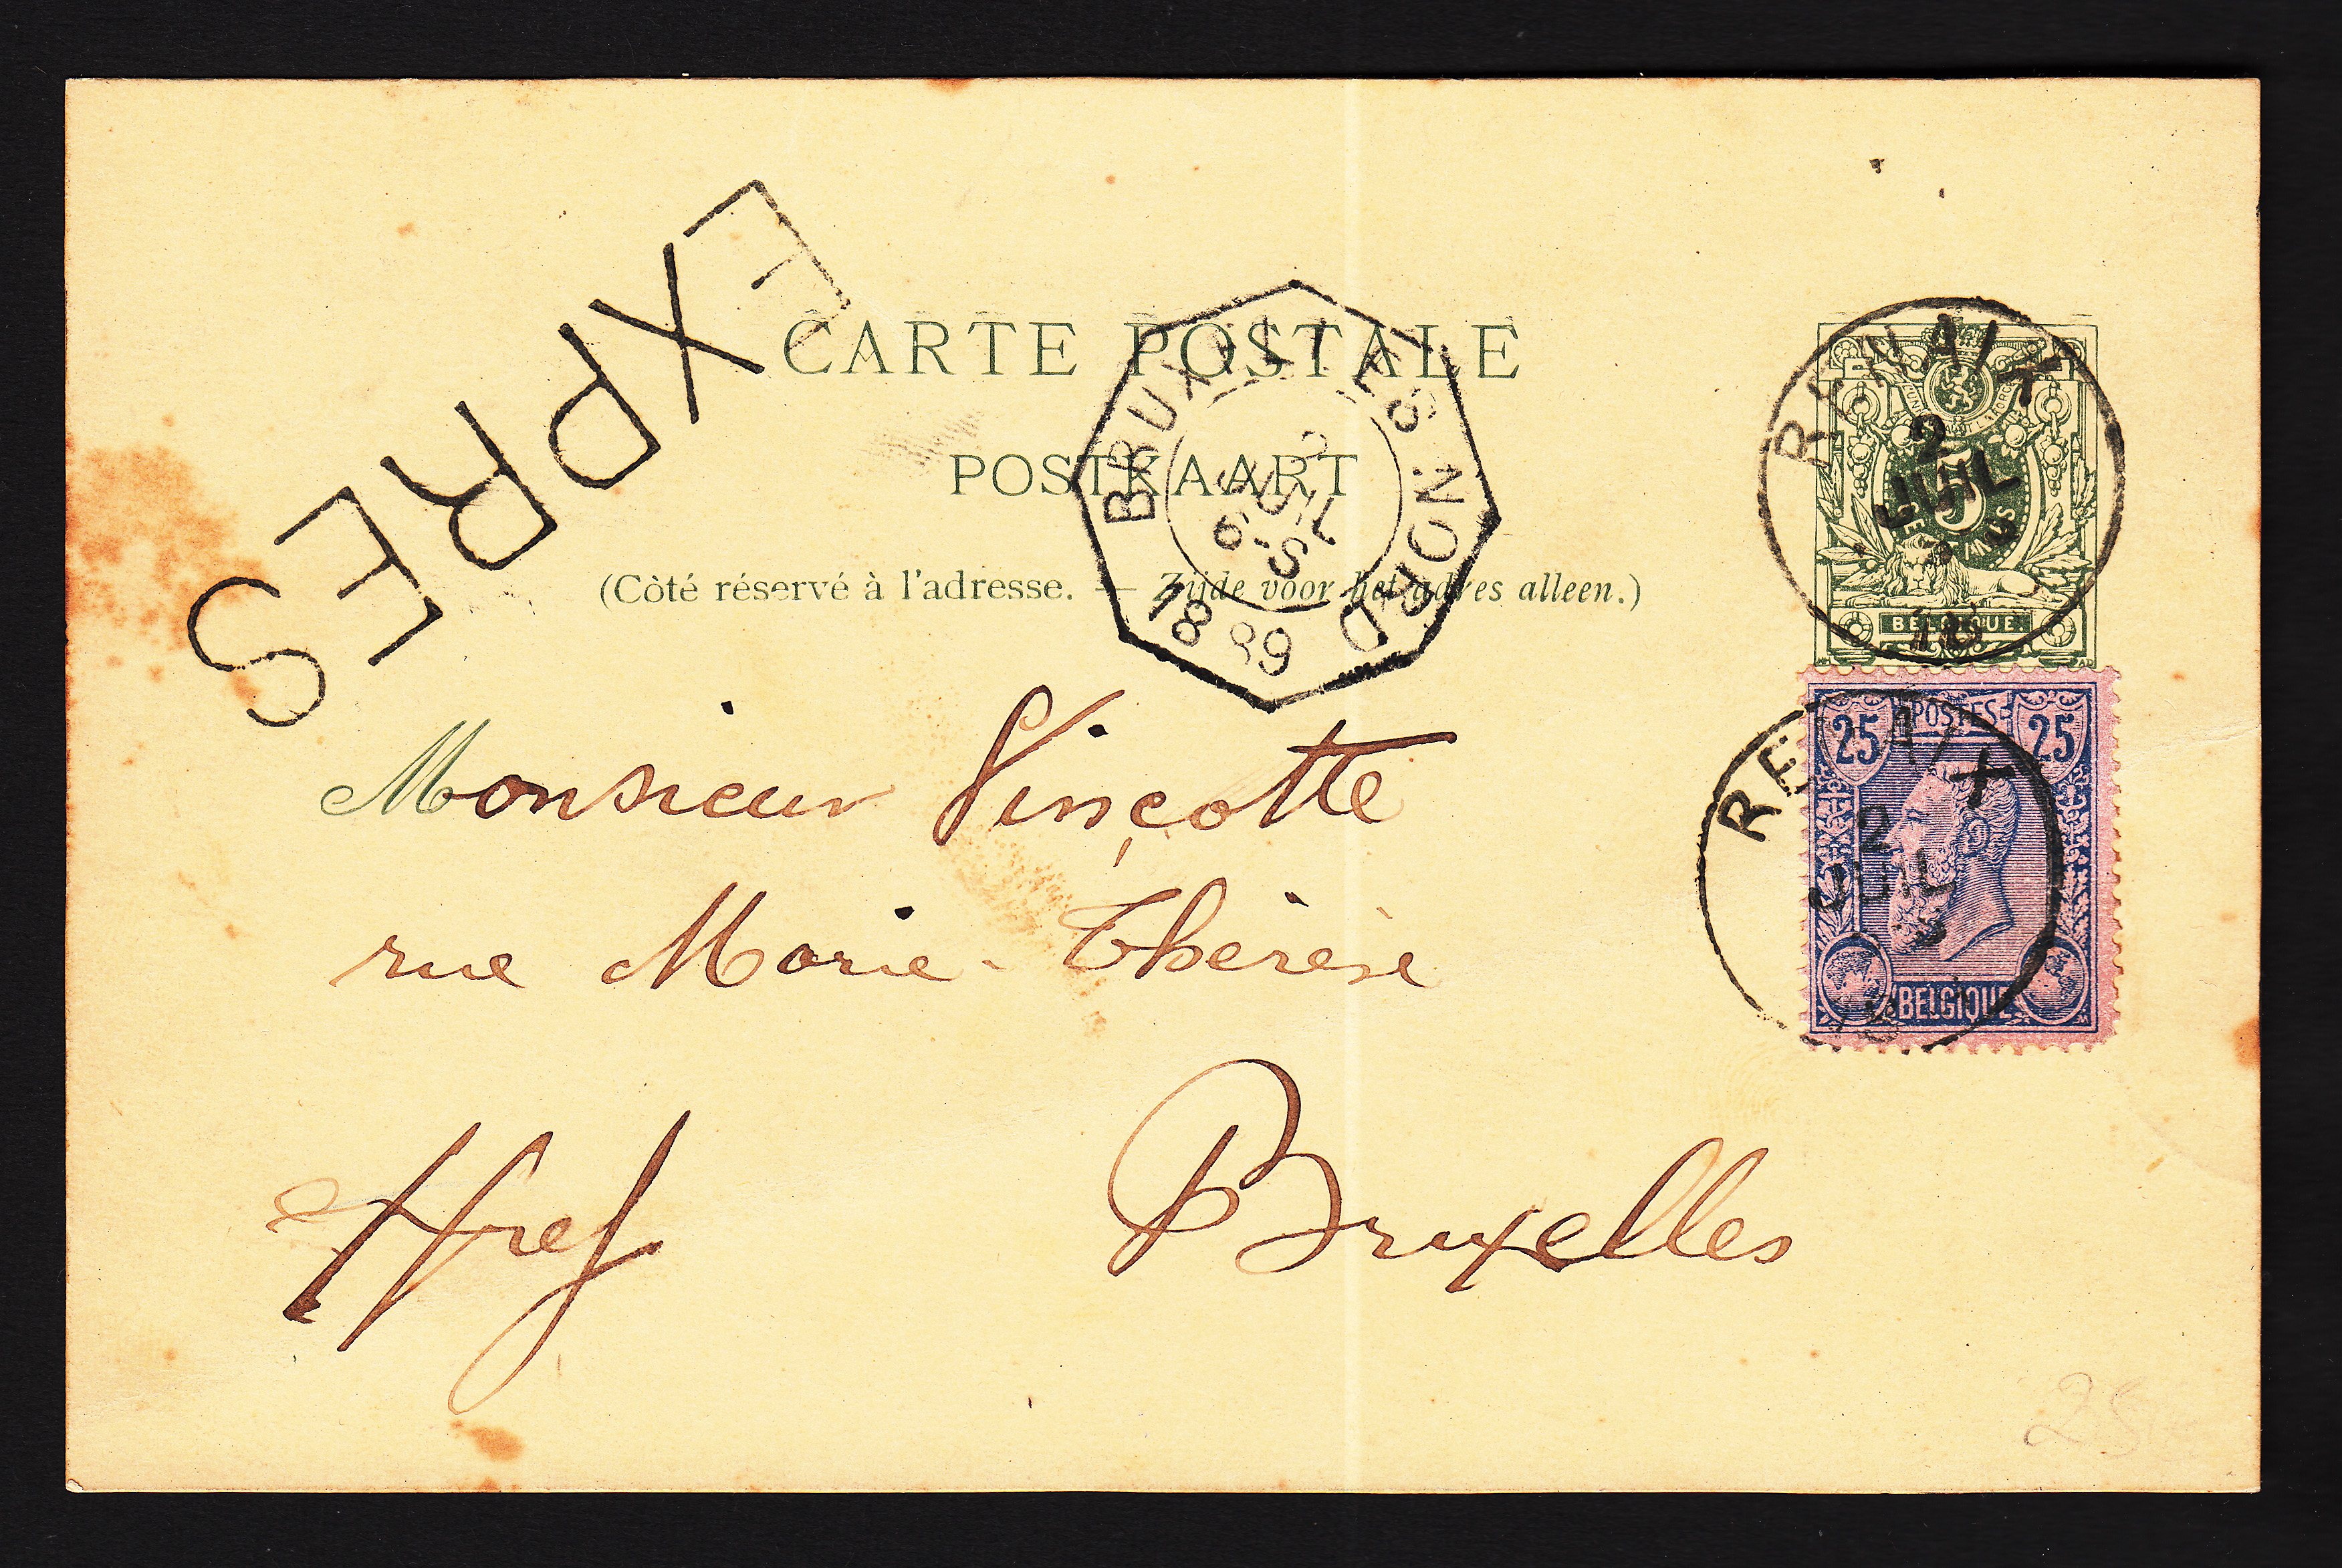 EXPRES
CARTE POSTALE
POSTKAART
(Côté réservé à l'adresse. — Zijde voor het adres alleen.)
BRUXELLES NORD
JUIL
6-S
1889
RENAIX
2
JUIL
5
BELGIQUE.
25 POSTES 25
RENAIX
2
JUIL
BELGIQUE
Monsieur Vinçotte
rue Marie-Thérèse
Bruxelles
25